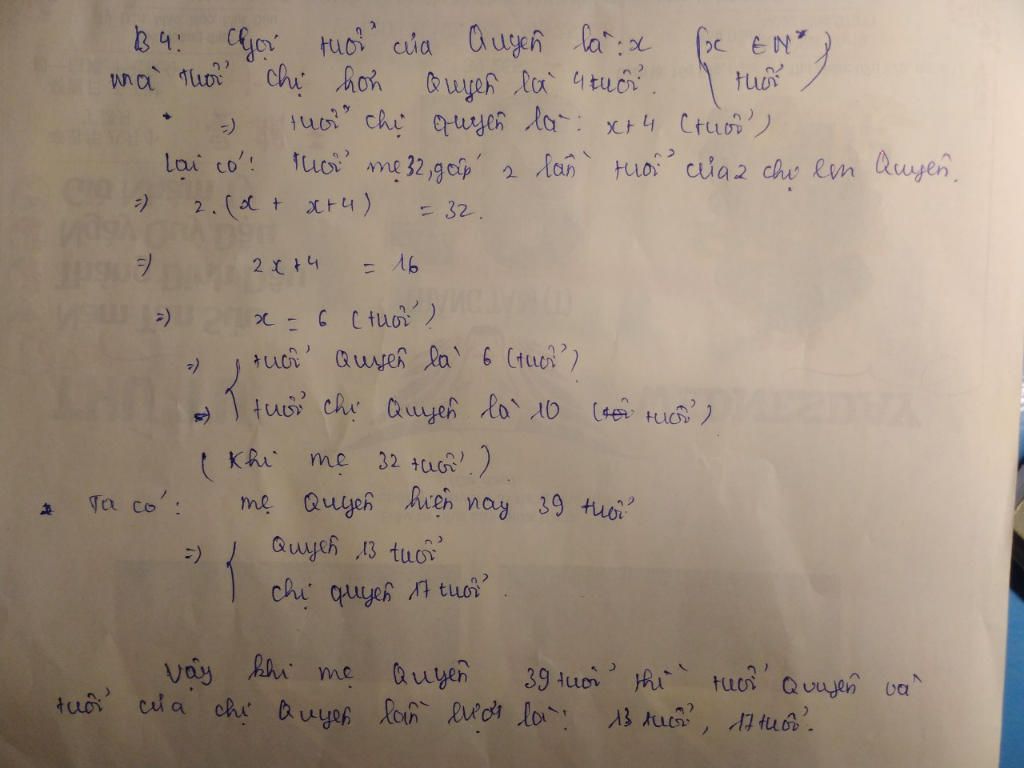 B4: Gọi tuổi của Quyên là: x (x ∈ N* tuổi)
mà tuổi chị hơn Quyên là 4 tuổi.
=> tuổi chị quyên là: x+4 (tuổi)
Lại có: tuổi mẹ 32, gấp 2 lần tuổi của 2 chị em Quyên.
=> 2.(x + x+4) = 32.
=> 2x+4 = 16
=> x = 6 (tuổi)
=> { tuổi Quyên là 6 (tuổi)
=> tuổi chị Quyên là 10 (tuổi)
(Khi mẹ 32 tuổi.)
* Ta có: mẹ Quyên hiện nay 39 tuổi
=> { Quyên 13 tuổi
chị quyên 17 tuổi.
Vậy khi mẹ Quyên 39 tuổi thì tuổi Quyên và
tuổi của chị Quyên lần lượt là: 13 tuổi, 17 tuổi.